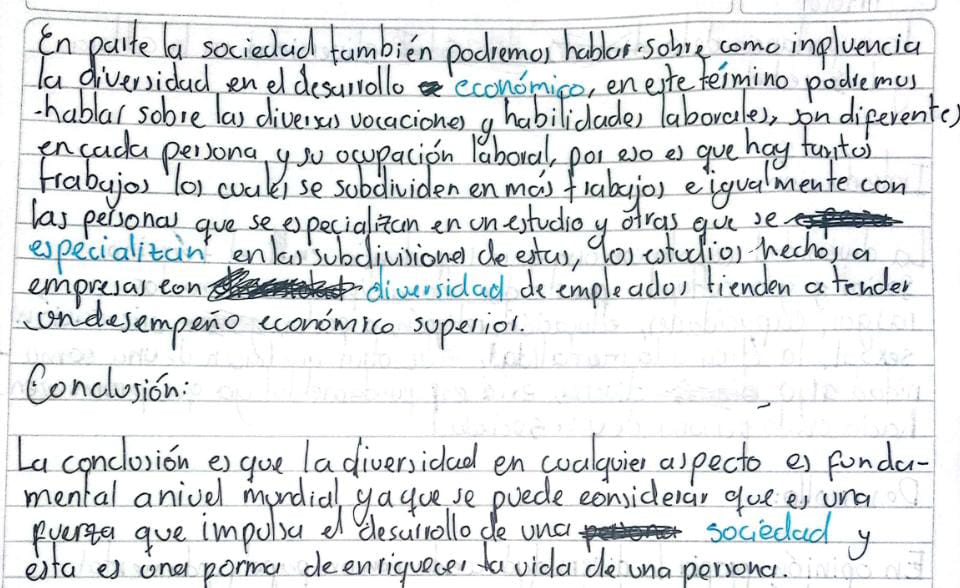 En parte la sociedad también podremos hablar sobre como influencia
la diversidad en el desarrollo económico, en este término podremos
hablar sobre las diversas vocaciones y habilidades laborales, son diferentes
en cada persona y su ocupación laboral, por eso es que hay tantos
trabajos los cuales se subdividen en más trabajos e igualmente con
las personas que se especializan en un estudio y otras que se
especializan en las subdivisiones de estas, los estudios hechos a
empresas con diversidad de empleados tienden a tender
un desempeño económico superior.
Conclusión:
La conclusión es que la diversidad en cualquier aspecto es funda-
mental a nivel mundial ya que se puede considerar que es una
fuerza que impulsa el desarrollo de una sociedad y
esta es una forma de enriquecer la vida de una persona